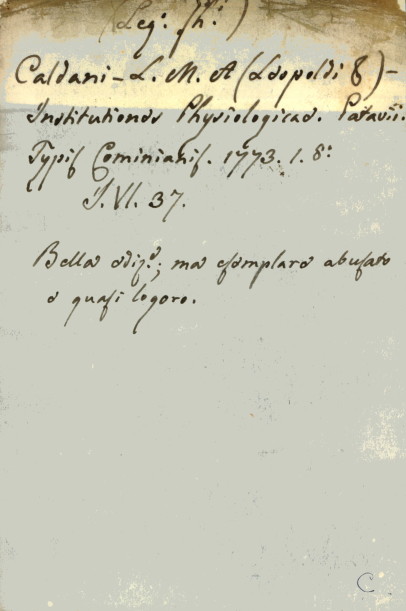 (Leg. fh.)
Caldani - L. M. A (Leopoldi &) -
Institutiones Physiologicae. Patavii.
Typis Cominianis. 1773. 1. 8º
J. VI. 37.
Bella ediz.e; ma esemplare abusato
e quasi logoro.
C